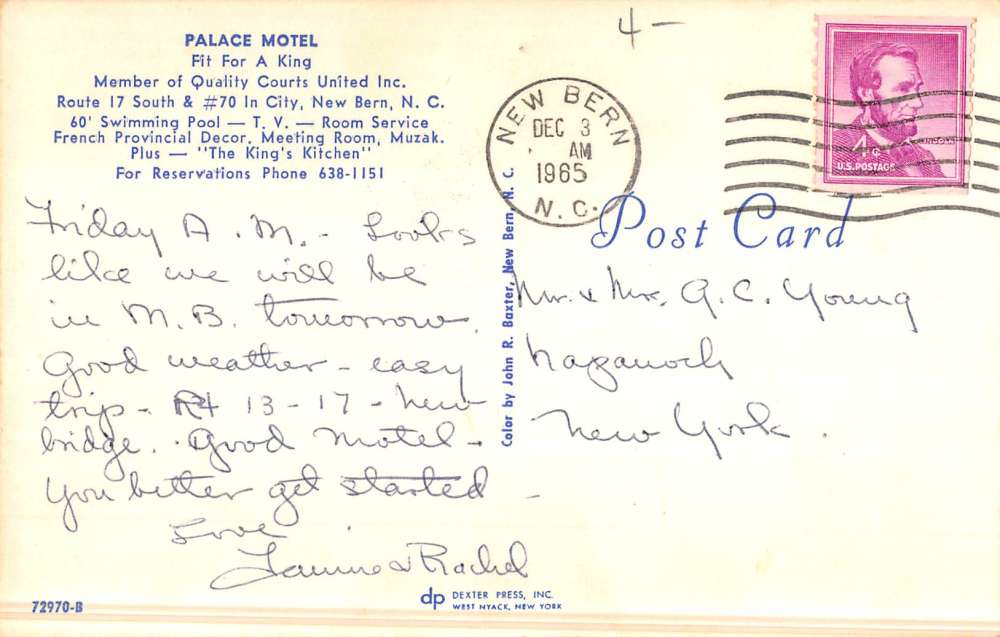 4-
PALACE MOTEL
Fit For A King
Member of Quality Courts United Inc.
Route 17 South & #70 In City, New Bern, N. C.
60' Swimming Pool — T. V. — Room Service
French Provincial Decor, Meeting Room, Muzak.
Plus — "The King's Kitchen"
For Reservations Phone 638-1151
Friday A.M. - Looks
like we will be
in M.B. tomorrow.
Good weather - easy
trip - Rt 13-17 - new
bridge. Good motel -
You better get started -
Love
& Rachel
72970-B
NEW BERN
DEC 3
AM
1965
N.C.
LINCOLN
4¢
U.S. POSTAGE
Post Card
Color by John R. Baxter, New Bern, N. C.
Mr. & Mrs. G. C. Young
Napanoch
New York.
dp DEXTER PRESS, INC.
WEST NYACK, NEW YORK